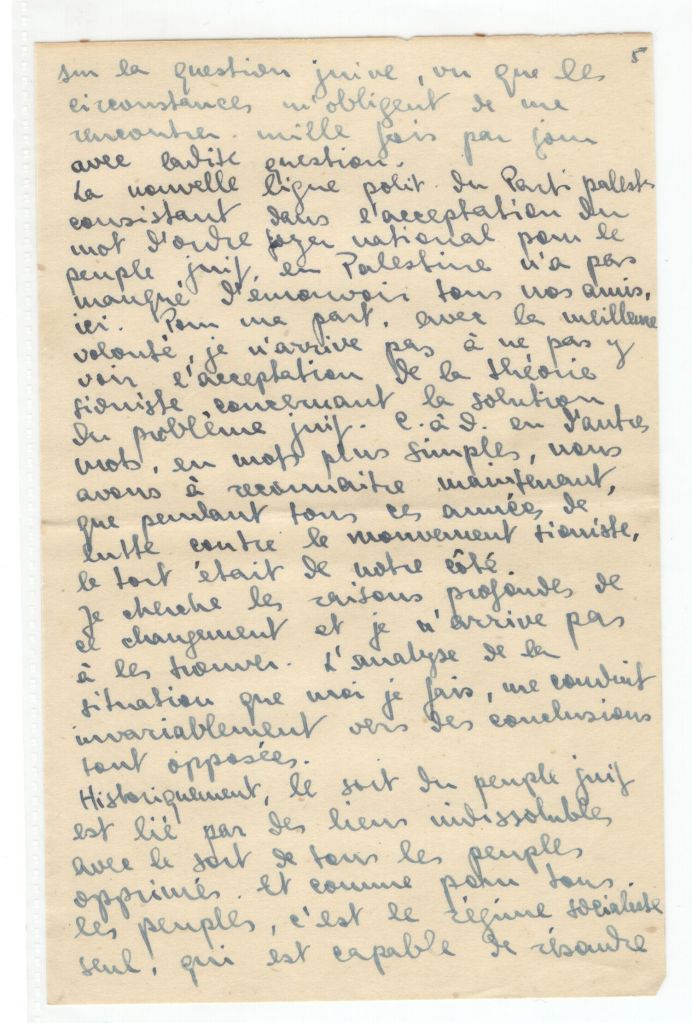 5
sur la question juive, vu que les
circonstances m'obligent de me
rencontrer mille fois par jour
avec ladite question.
La nouvelle ligne polit. du Parti palest.
consistant dans l'acceptation du
mot d'ordre foyer national pour le
peuple juif en Palestine n'a pas
manqué d'émouvoir tous nos amis,
ici. Pour ma part, avec la meilleure
volonté, je n'arrive pas à ne pas y
voir l'acceptation de la théorie
sioniste concernant la solution
du problème juif. C.à.d. en d'autres
mots, en mots plus simples, nous
avons à reconnaitre maintenant,
que pendant tous ces années de
lutte contre le mouvement sioniste,
le tort était de notre côté.
Je cherche les raisons profondes de
ce changement et je n'arrive pas
à les trouver. L'analyse de la
situation que moi je fais, me conduit
invariablement vers des conclusions
tout opposées.
Historiquement, le sort du peuple juif
est lié par des liens indissolubles
avec le sort de tous les peuples
opprimés. Et comme pour tous
les peuples, c'est le régime socialiste
seul, qui est capable de résoudre